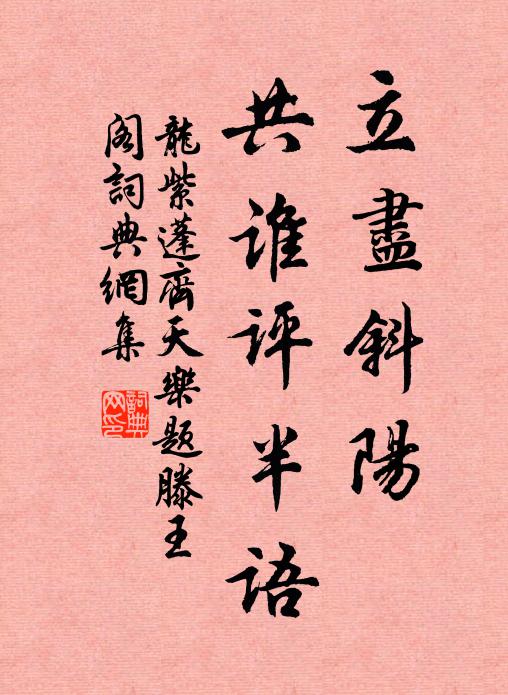 立盡斜陽
共誰評半語
龍紫蓬齊天樂題滕王
閣詞典網集
詞典
网印